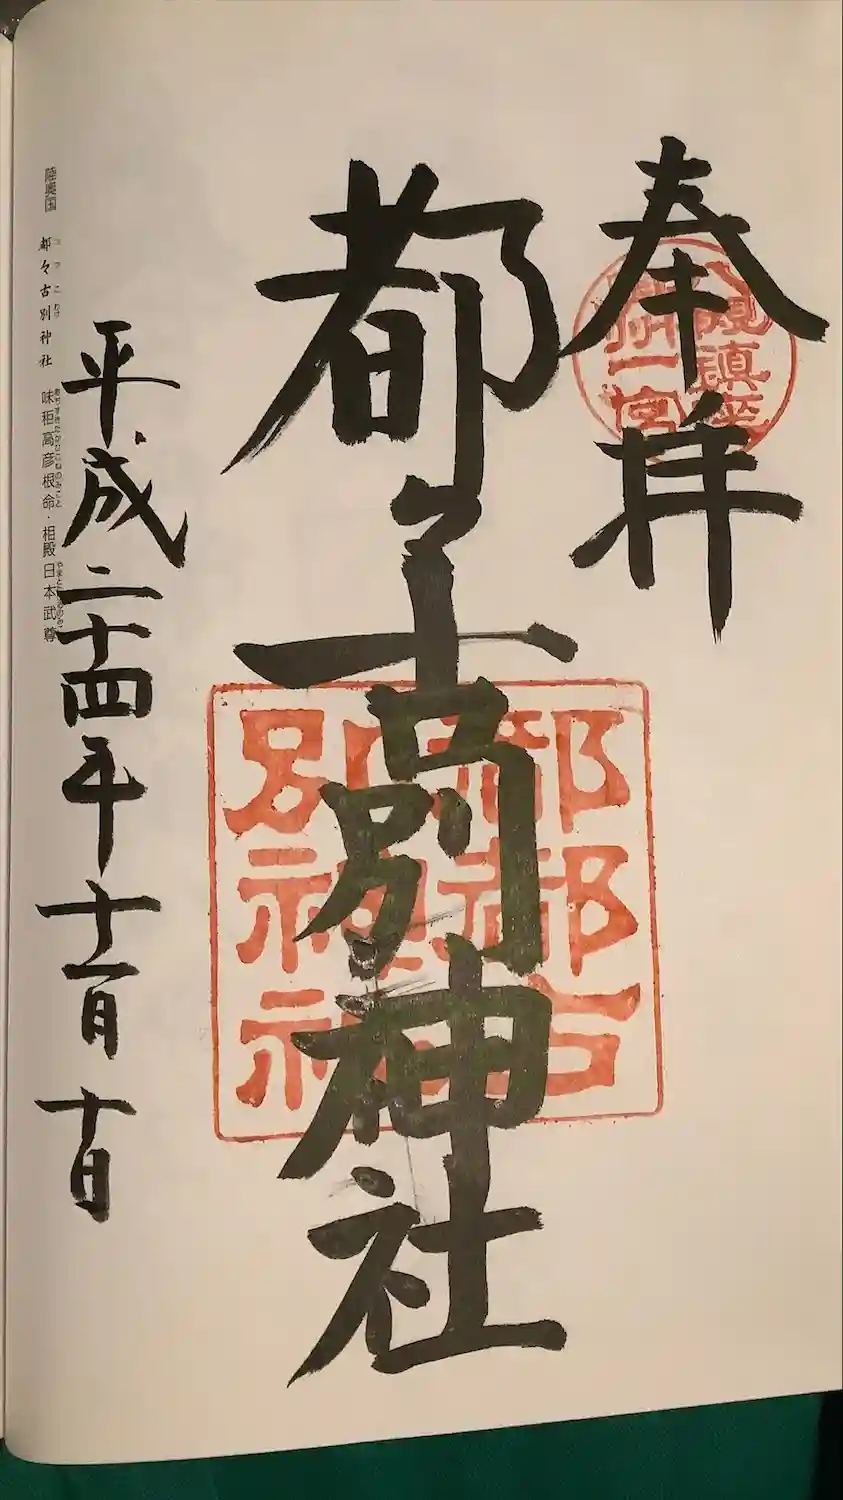 奉拝
八槻鎮座
奥州一宮
都々古別神社
都都古
別神社
平成二十四年十一月十日
陸奥国 都々古別神社 味耜高彦根命・相殿日本武尊
つつこわけ